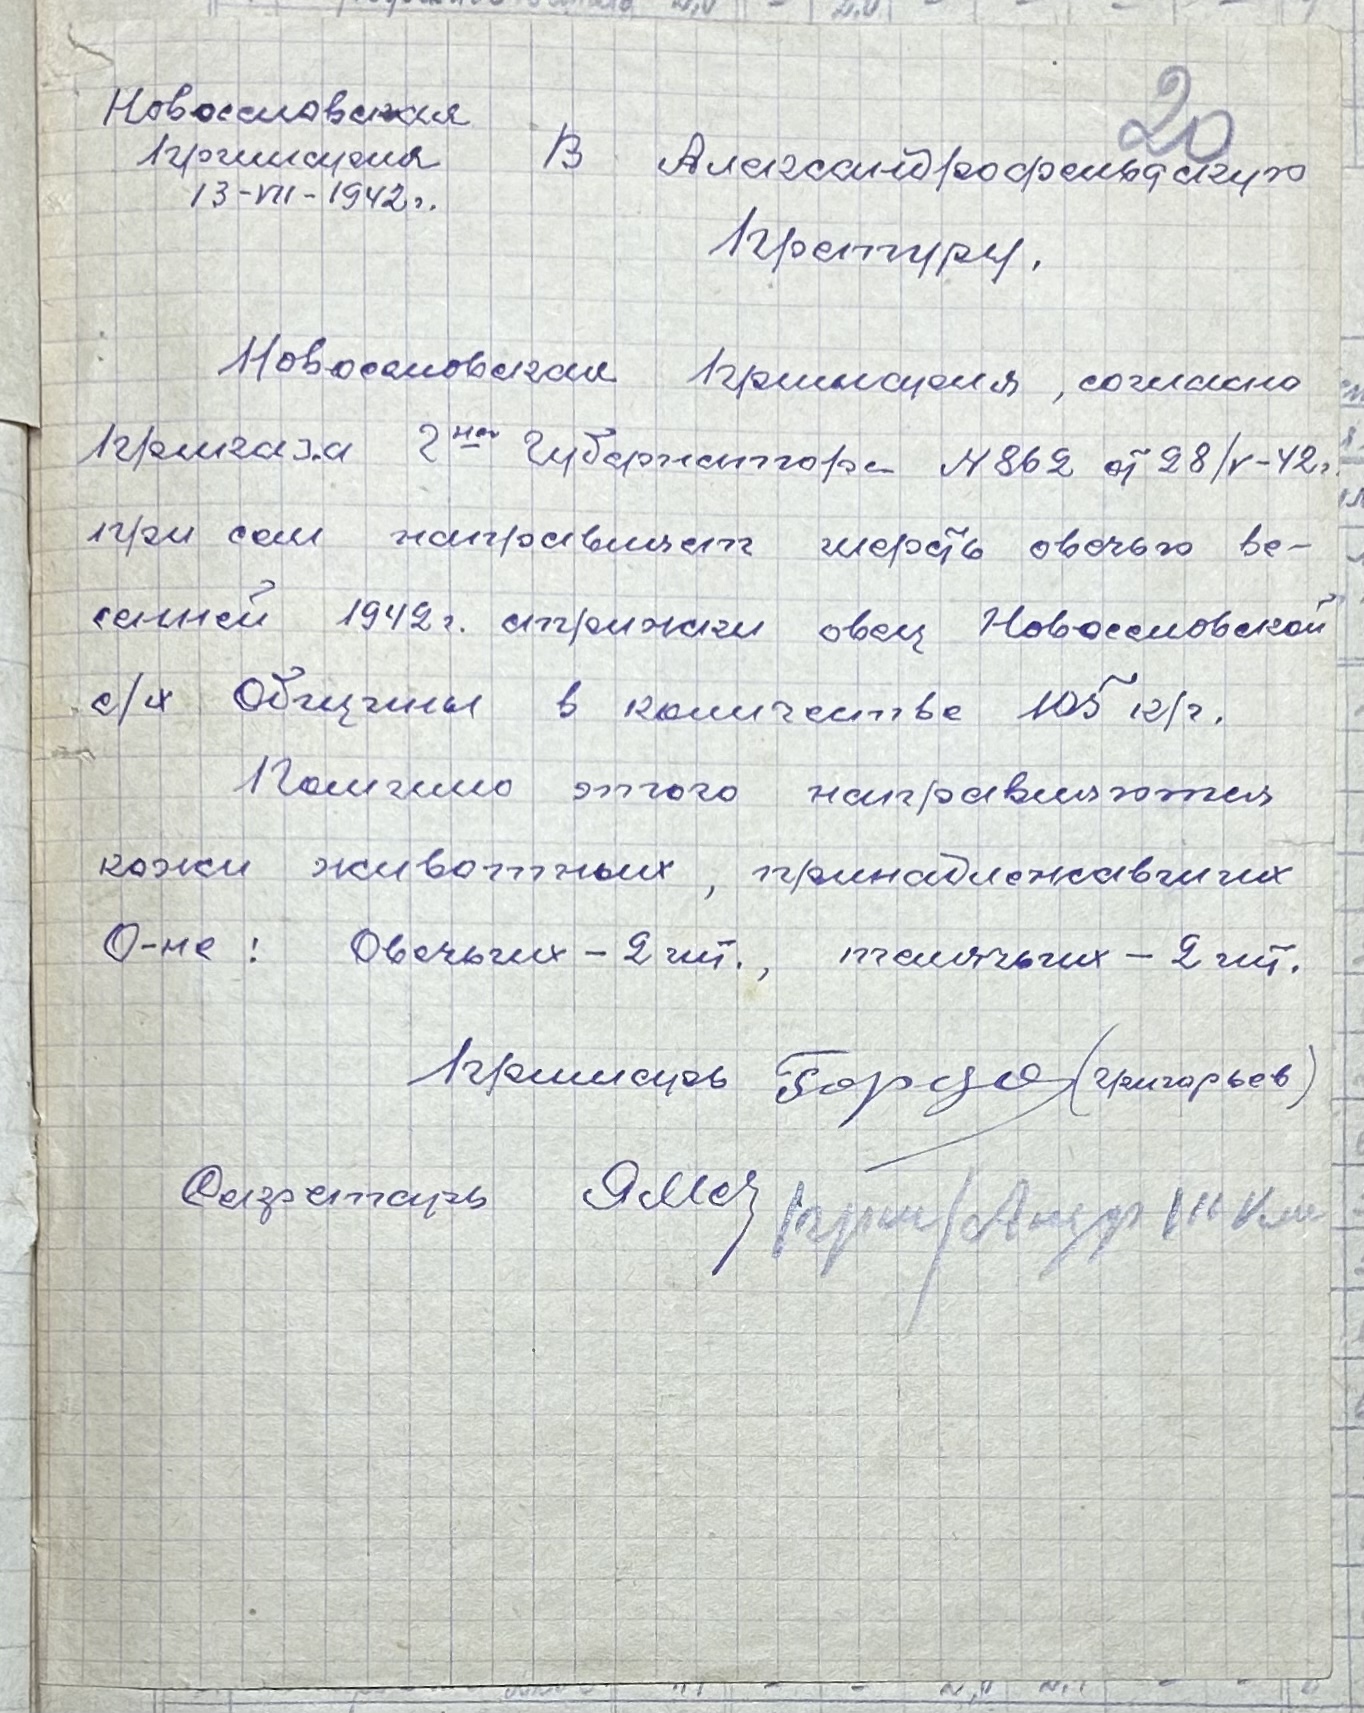 20
Новоселовская
Примария
13-VII-1942г.
В Александрофельдскую
Претуру.
Новоселовская Примария, согласно
Приказа Г-на Губернатора N 862 от 28/V-42г.
при сем направляет шерсть овечью ве-
сенней 1942г. стрижки овец Новоселовской
с/х Общины в количестве 105 к/г.
Помимо этого направляются
кожи животных, принадлежавших
О-не: Овечьих - 2 шт., телячьих - 2 шт.
Примарь (Григорьев)
Секретарь